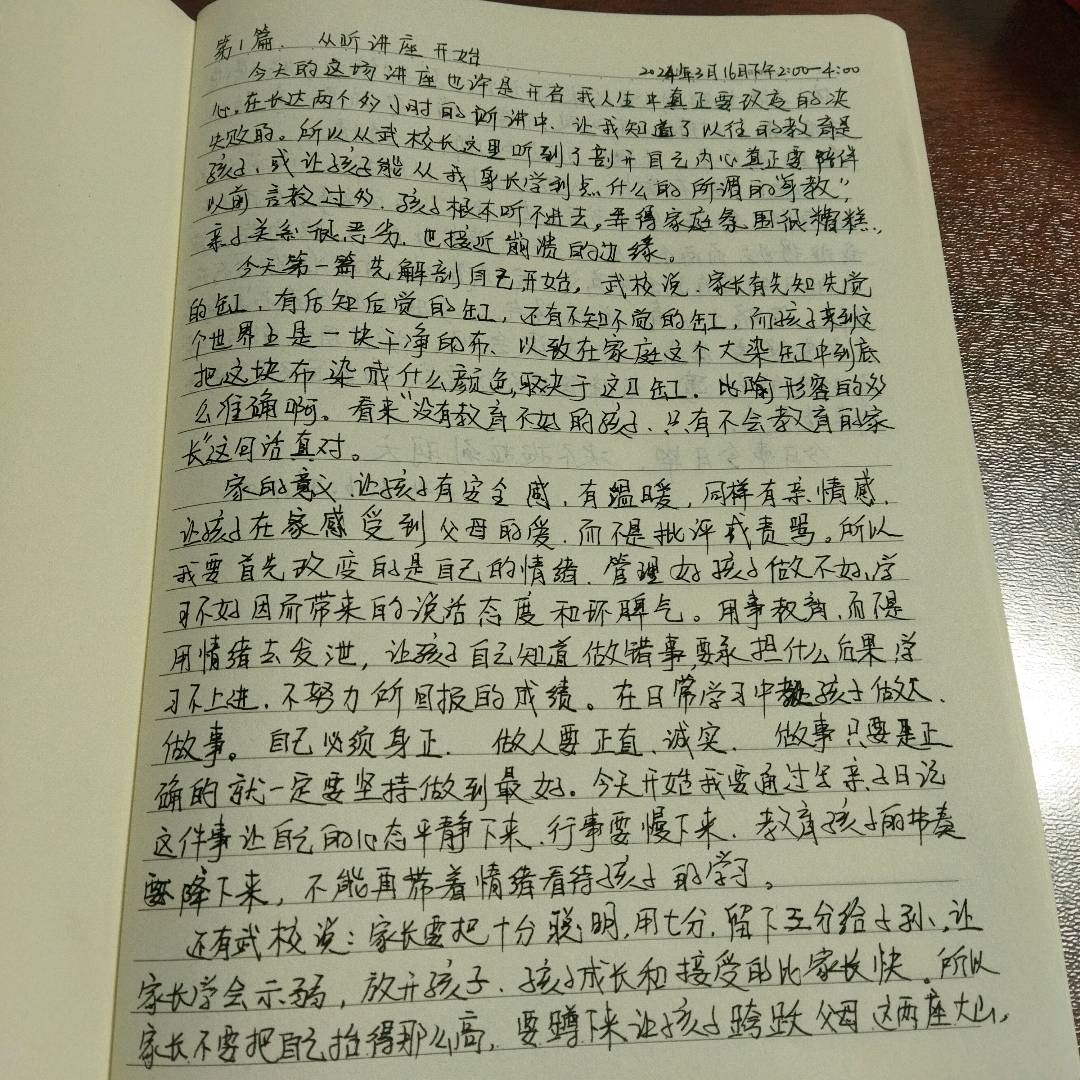 第1篇. 从听讲座开始
2024年3月16日下午2:00—4:00
今天的这场讲座也许是开启我人生中真正要改变的决
心. 在长达两个多小时的听讲中. 让我知道了以往的教育是
失败的。所以从武校长这里听到了剖开自己内心真正要陪伴
孩子, 或让孩子能从我身长学到点什么的所谓的“身教”,
以前言教过多. 孩子根本听不进去, 弄得家庭氛围很糟糕.
亲子关系很恶劣. 也接近崩溃的边缘。
今天第一篇先解剖自己开始, 武校说. 家长有先知先觉
的缸, 有后知后觉的缸, 还有不知不觉的缸, 而孩子来到这
个世界上是一块干净的布. 以致在家庭这个大染缸中到底
把这块布染成什么颜色, 取决于这口缸. 比喻形容的多
么准确啊。看来“没有教育不好的孩子. 只有不会教育的家
长”这句话真对。
家的意义, 让孩子有安全感, 有温暖, 同样有亲情感.
让孩子在家感受到父母的爱. 而不是批评或责骂。所以
我要首先改变的是自己的情绪. 管理好孩子做不好, 学
习不好因而带来的说话态度和坏脾气。用事教育, 而不是
用情绪去发泄, 让孩子自己知道做错事, 要承担什么后果, 学
习不上进. 不努力所回报的成绩。在日常学习中教孩子做人.
做事。自己必须身正. 做人要正直、诚实. 做事只要是正
确的就一定要坚持做到最好。今天开始我要通过写亲子日记
这件事让自己的心态平静下来. 行事要慢下来. 教育孩子的节奏
要降下来, 不能再带着情绪看待孩子的学习。
还有武校说: 家长要把十分聪明, 用七分, 留下三分给子孙, 让
家长学会示弱, 放开孩子. 孩子成长和接受的比家长快。所以
家长不要把自己抬得那么高, 要蹲下来让孩子跨跃父母这两座大山,